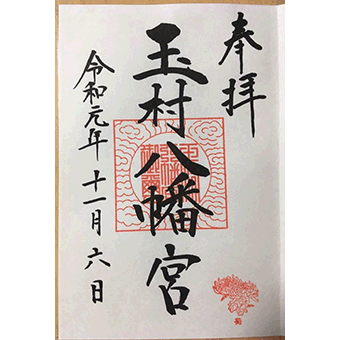 奉拝
玉村八幡宮
令和元年十一月六日